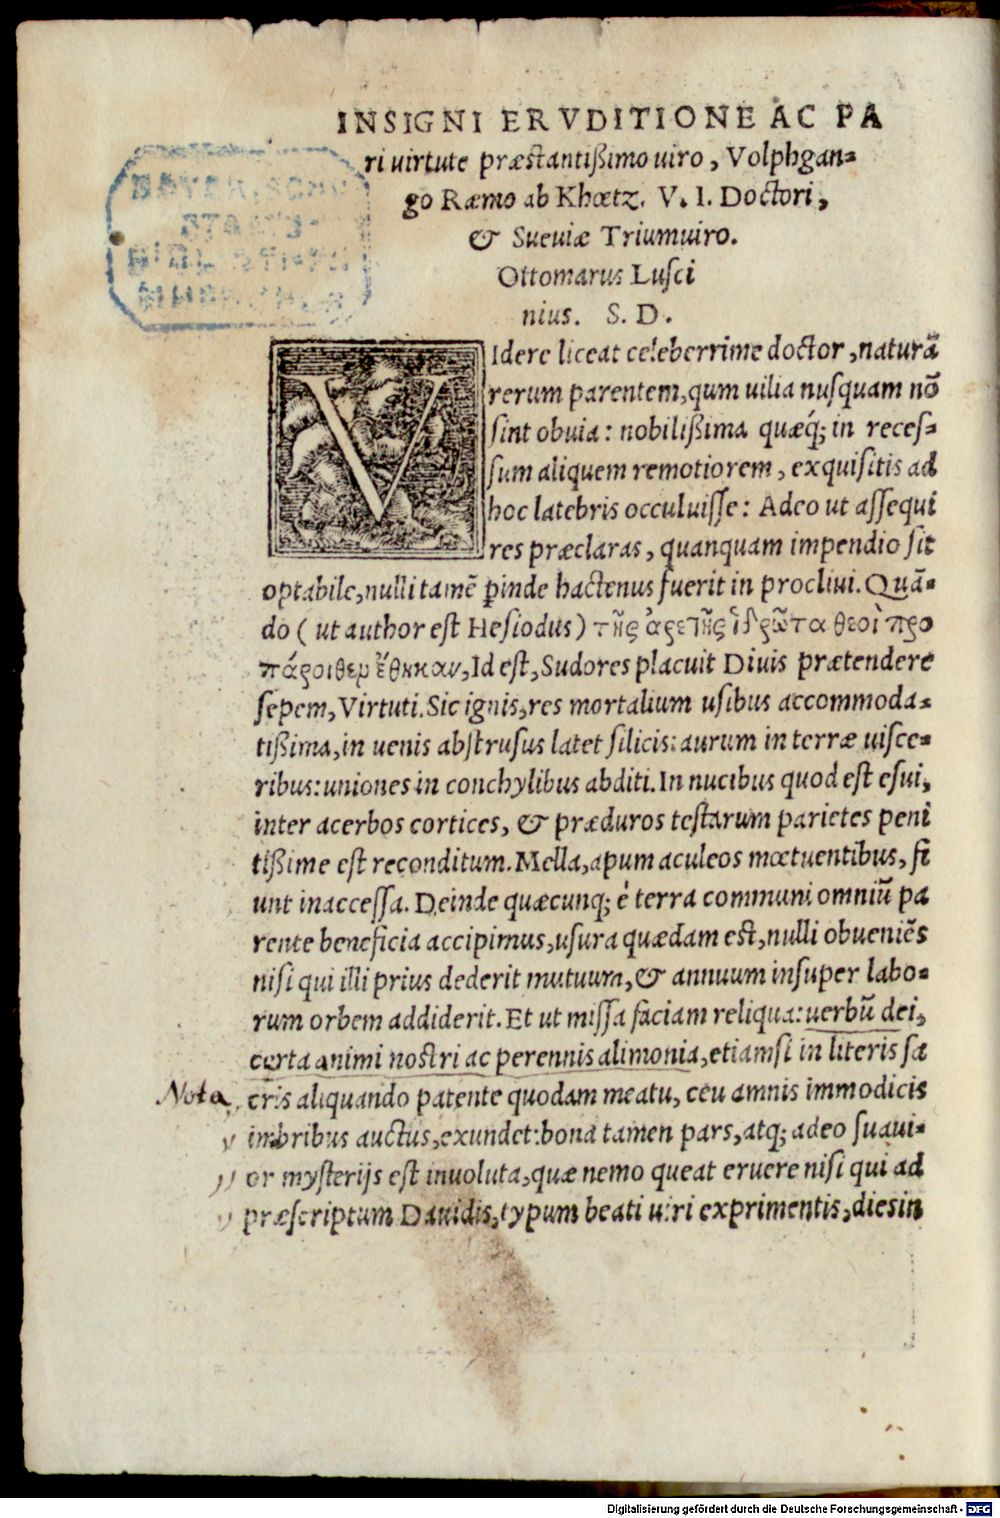 INSIGNI ERVDITIONE AC PA
ri uirtute præstantißimo uiro, Volphgan-
go Ræmo ab Khœtz. V. I. Doctori,
& Sueuiæ Triumuiro.
Ottomarus Lusci
nius. S. D.
BAYERISCHE
STAATS-
BIBLIOTHEK
MUENCHEN
VIdere liceat celeberrime doctor, naturā
rerum parentem, qum uilia nusquam nō
sint obuia: nobilißima quæq́; in reces-
sum aliquem remotiorem, exquisitis ad
hoc latebris occuluisse: Adeo ut assequi
res præclaras, quanquam impendio sit
optabile, nulli tamē ꝑinde hactenus fuerit in procliui. Quā-
do ( ut author est Hesiodus ) τῆς ἀρετῆς ἱδρῶτα θεοὶ προ
πάροιθεμ ἔθηκαν, Id est, Sudores placuit Diuis prætendere
sepem, Virtuti. Sic ignis, res mortalium usibus accommoda-
tißima, in uenis abstrusus latet silicis: aurum in terræ uisce-
ribus: uniones in conchylibus abditi. In nucibus quod est esui,
inter acerbos cortices, & præduros testarum parietes peni
tißime est reconditum. Mella, apum aculeos mœtuentibus, fi
unt inaccessa. Deinde quæcunq; è terra communi omniū pa
rente beneficia accipimus, usura quædam est, nulli obueniēs
nisi qui illi prius dederit mutuum, & annuum insuper labo-
rum orbem addiderit. Et ut missa faciam reliqua: uerbū dei,
certa animi nostri ac perennis alimonia, etiamsi in literis sa
Nota
cris aliquando patente quodam meatu, ceu amnis immodicis
imbribus auctus, exundet: bona tamen pars, atq; adeo suaui-
or mysterijs est inuoluta, quæ nemo queat eruere nisi qui ad
præscriptum Dauidis, typum beati uiri exprimentis, diesin
Digitalisierung gefördert durch die Deutsche Forschungsgemeinschaft - DFG